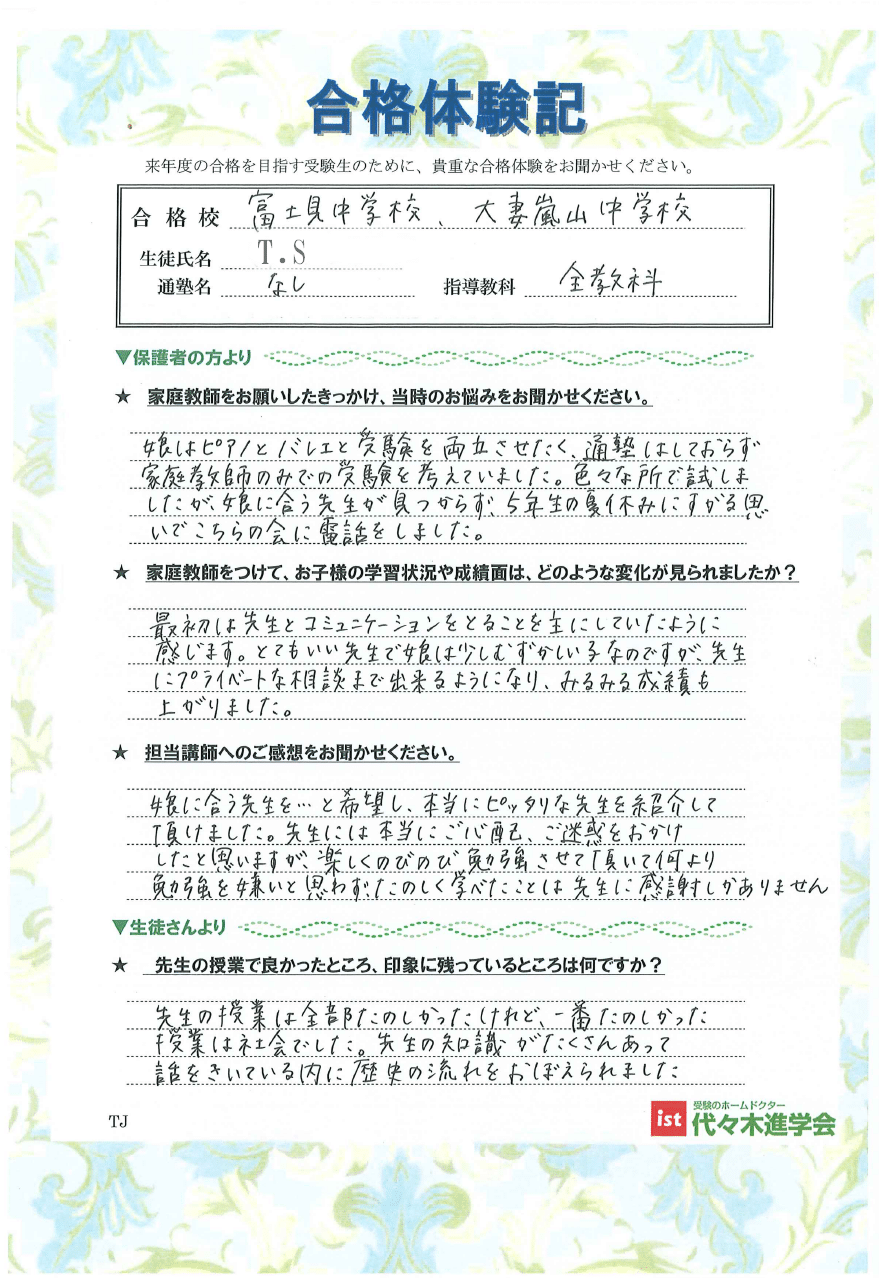 合格体験記
来年度の合格を目指す受験生のために、貴重な合格体験をお聞かせください。
合格校 富士見中学校、大妻嵐山中学校
生徒氏名 T.S
通塾名 なし 指導教科 全教科
▼保護者の方より
★ 家庭教師をお願いしたきっかけ、当時のお悩みをお聞かせください。
娘はピアノとバレエと受験を両立させたく、通塾はしておらず
家庭教師のみでの受験を考えていました。色々な所で試しま
したが、娘に合う先生が見つからず、5年生の夏休みにすがる思
いでこちらの会に電話をしました。
★ 家庭教師をつけて、お子様の学習状況や成績面は、どのような変化が見られましたか？
最初は先生とコミュニケーションをとることを主にしていたように
感じます。とてもいい先生で娘は少しむずかしい子なのですが、先生
にプライベートな相談まで出来るようになり、みるみる成績も
上がりました。
★ 担当講師へのご感想をお聞かせください。
娘に合う先生を…と希望し、本当にピッタリな先生を紹介して
頂けました。先生には本当にご心配、ご迷惑をおかけ
したと思いますが、楽しくのびのび勉強させて頂いて何より
勉強を嫌いと思わず、たのしく学べたことは先生に感謝しかありません
▼生徒さんより
★ 先生の授業で良かったところ、印象に残っているところは何ですか？
先生の授業は全部たのしかったけれど、一番たのしかった
授業は社会でした。先生の知識がたくさんあって
話をきいている内に歴史の流れをおぼえられました
TJ
ist 受験のホームドクター
代々木進学会